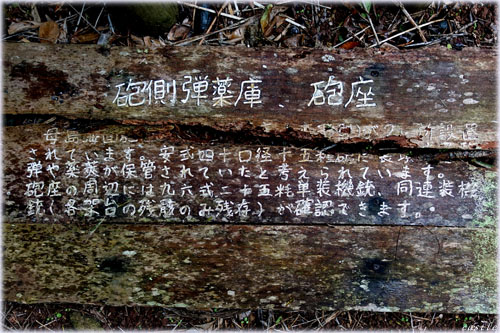 砲側弾薬庫、砲座
母島
されています。安式四十口径十五糎
弾や楽薬が保管されていたと考えられています。
砲座の周辺には九六式二十五粍単装機銃、同連装機
銃(各架台の残骸のみ残存)が確認できます。